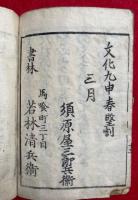 文化九申春竪刻
三月
須原屋三郎兵衛
書林
馬喰町三丁目
若林清兵衛